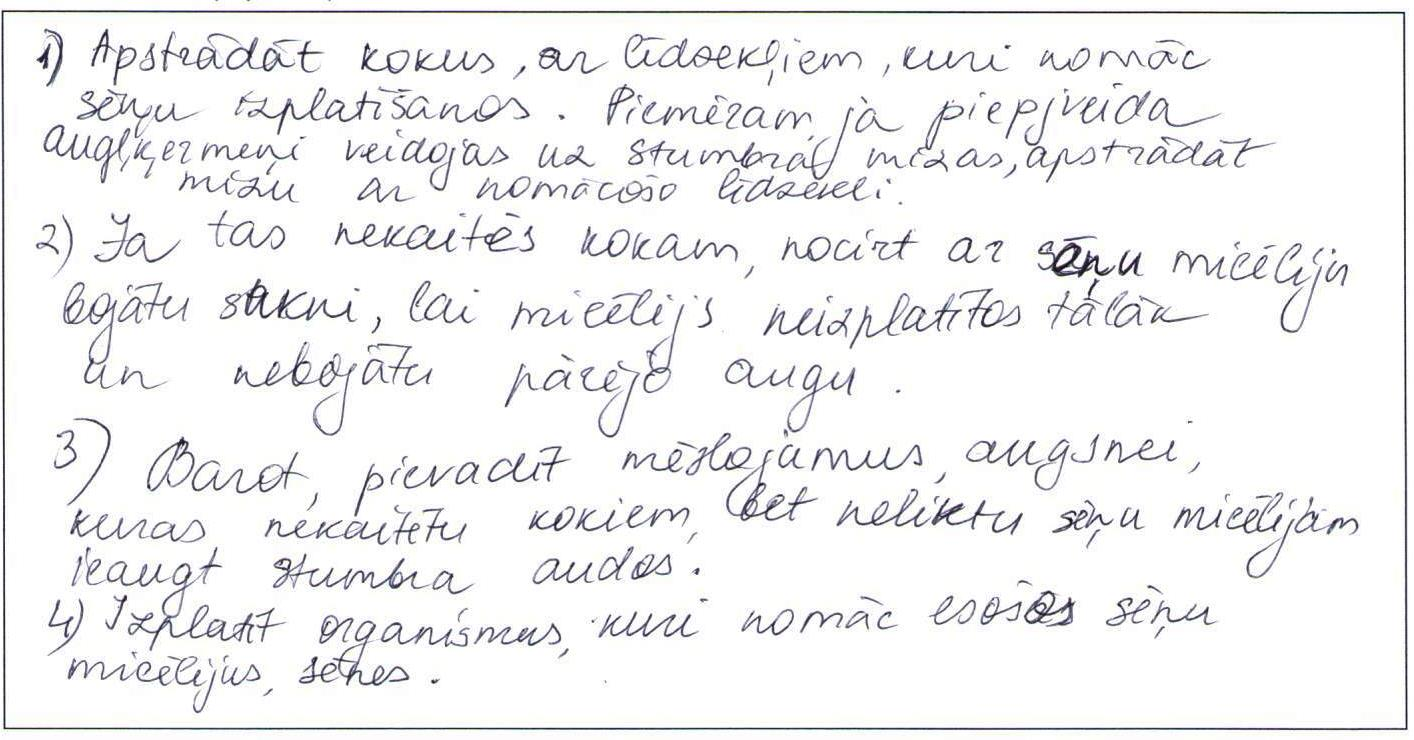 1) Apstrādāt kokus, ar līdzekļiem, kuri nomāc
sēņu izplatīšanos. Piemēram, ja piepjveida
augļķermeņi veidojas uz stumbra mizas, apstrādāt
mizu ar nomācošo līdzekli.
2) Ja tas nekaitēs kokam, nocirt ar sēņu micēliju
bojātu sakni, lai micēlijs neizplatītos tālāk
un nebojātu pārējo augu.
3) Barot, pievadīt mēslojumus augsnei,
kuras nekaitētu kokiem, bet neliktu sēņu micēlijam
ieaugt stumbra audos.
4) Izplatīt organismus, kuri nomāc esošos sēņu
micēlijus, sēnes.